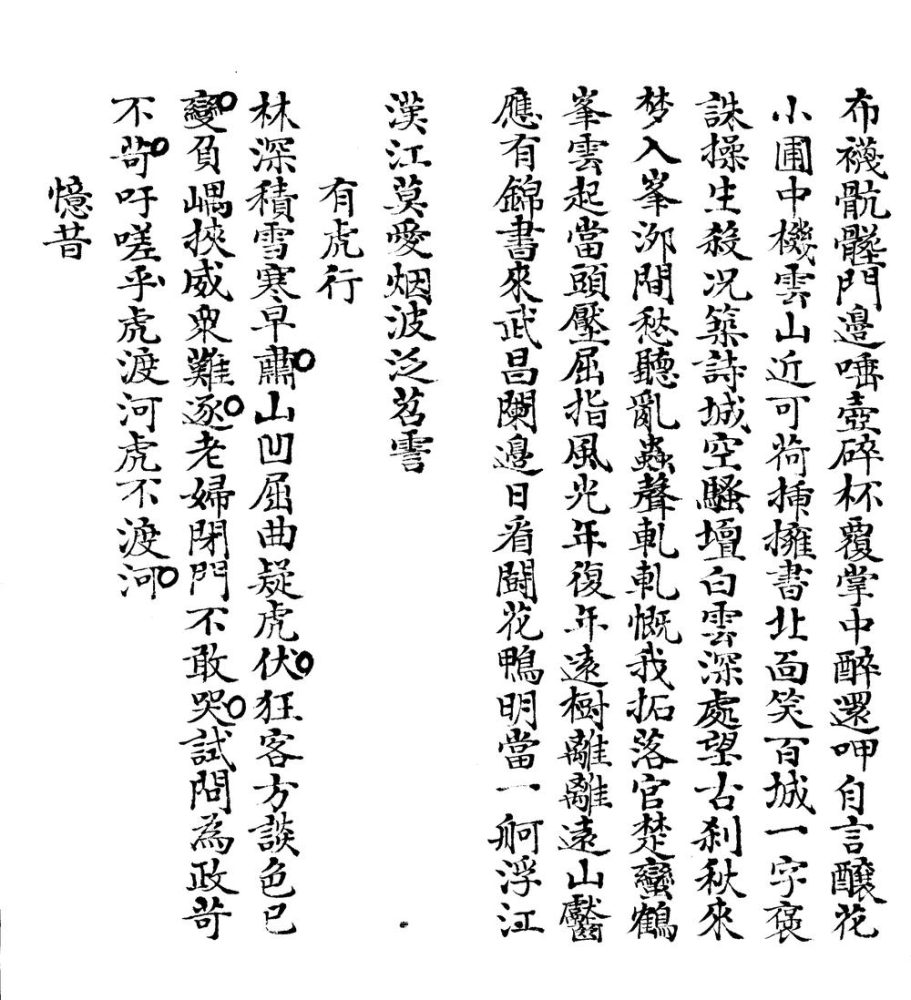 布襪骯髒門邊唾壺碎杯覆掌中醉還呷自言釀花
小圃中機雲山近可荷揷擁書北面笑百城一字褒
誅操生殺况築詩城空騷壇白雲深處望古刹秋來
梦入峯泖間愁聽亂蟲聲軋軋慨我拓落官楚蠻鶴
峯雲起當頭壓屈指風光年復年遠樹離離遠山齾
應有錦書來武昌闌邊日看鬪花鴨明當一舸浮江
漢江莫愛烟波泛苕霅
有虎行
林深積雪寒早肅山凹屈曲疑虎伏狂客方談色已
變負嵎挾威衆難逐老婦閉門不敢哭試問為政苛
不苛吁嗟乎虎渡河虎不渡河
憶昔